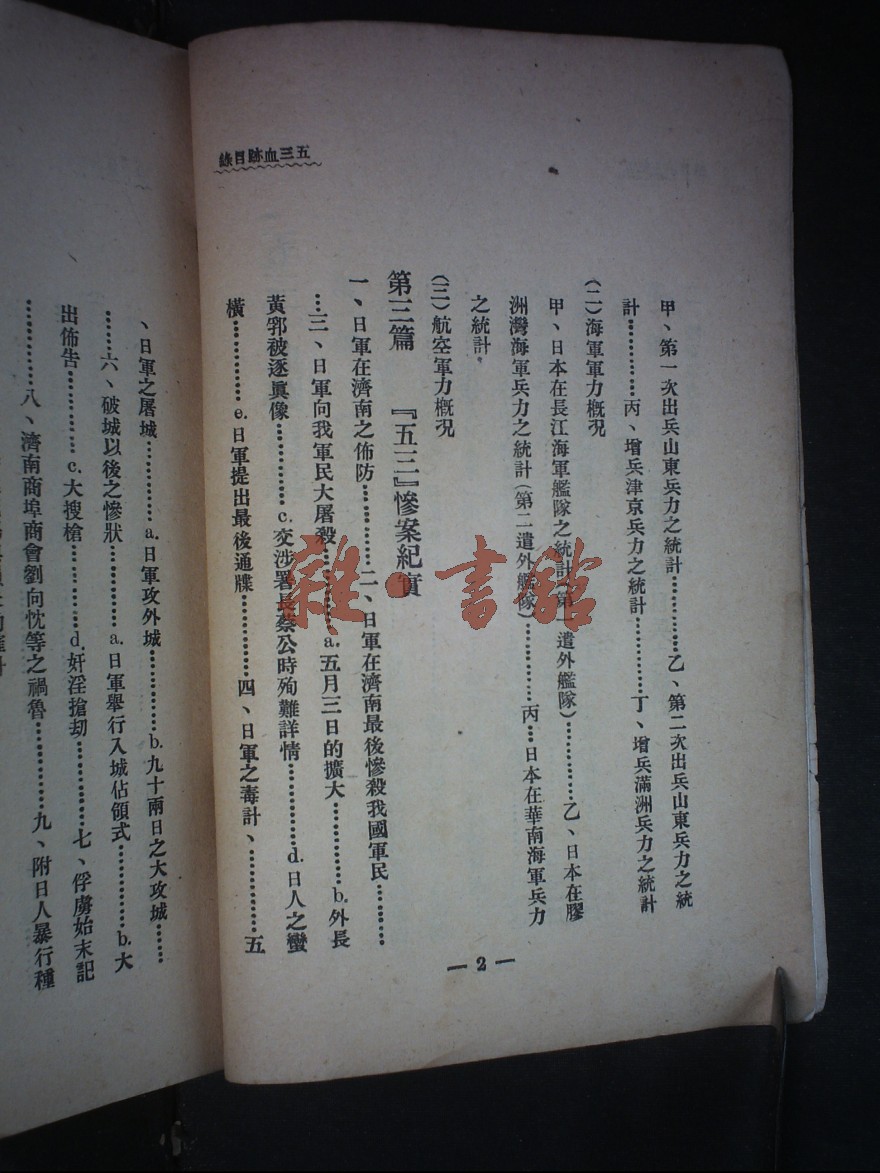 五三血跡目錄
甲、第一次出兵山東兵力之統計…………乙、第二次出兵山東兵力之統
計…………丙、增兵津京兵力之統計…………丁、增兵滿洲兵力之統計
(二)海軍軍力槪況
甲、日本在長江海軍艦隊之統計(第一遣外艦隊)…………乙、日本在膠
洲灣海軍兵力之統計(第二遣外艦隊)…………丙、日本在華南海軍兵力
之統計。
(三)航空軍力槪况
第三篇 『五三』慘案紀實
一、日軍在濟南之佈防…………二、日軍在濟南最後慘殺我國軍民………
…三、日軍向我軍民大屠殺…………a.五月三日的擴大…………b.外長
黃郛被逐眞像…………c.交涉署長蔡公時殉難詳情…………d.日人之蠻
橫…………e.日軍提出最後通牒…………四、日軍之毒計、…………五
— 2 —
、日軍之屠城…………a.日軍攻外城…………b.九十兩日之大攻城……
……六、破城以後之慘狀…………a.日軍舉行入城佔領式…………b.大
出佈告…………c.大搜槍…………d.奸淫搶刧…………七、俘虜始末記
…………八、濟南商埠商會劉向忱等之禍魯…………九、附日人暴行種
雜·書館